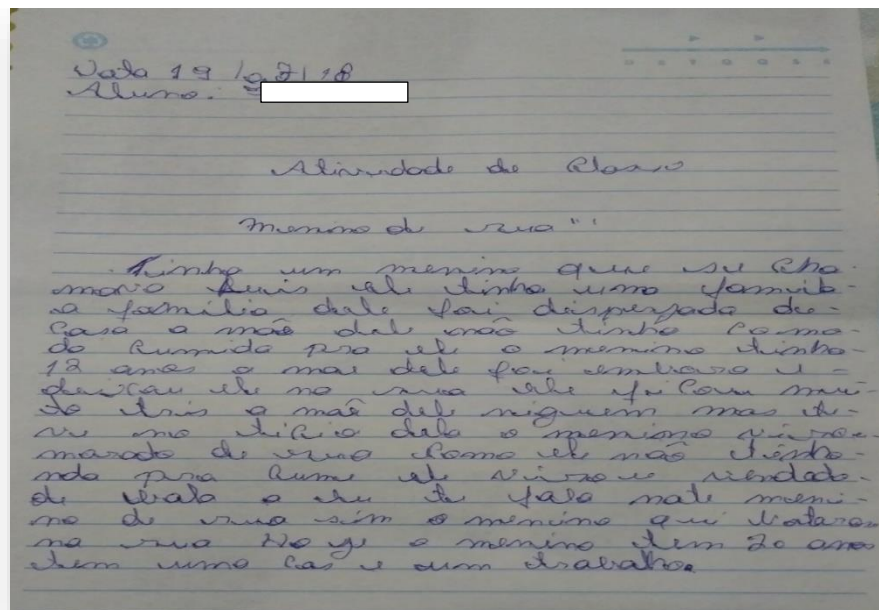 Data 19/07/18
Aluno:
Atividade de Classe
menino de rua "!
Tinha um menino que se cha-
mava Luis ele tinha uma familh-
a família dele foi dispejada de-
casa a mãe dele não tinha coma-
do cumida pra ele o menino tinha-
12 anos a mae dele foi embrara i-
deixou ele na rua ele ficou mui-
to tris a mãe dele niguem mas te-
ve no ticia dela o menino virou-
marado de rua como ele não tinha-
nda pra cume ele virou viendado-
de bala o eu te falo nate meni-
no de rua sim o menino que botaram
na rua Hoge o menino tem 20 anos
tem uma cas e um trabalho.